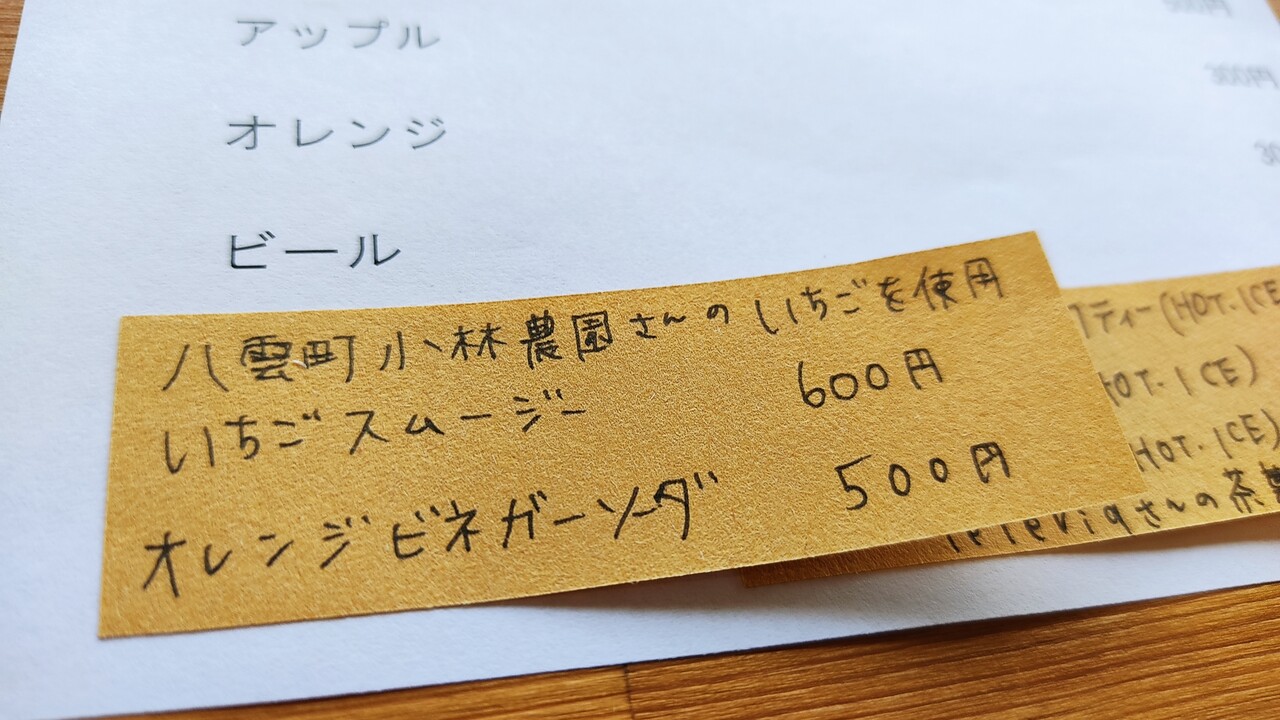 アップル
オレンジ 300円
ビール 30
八雲町小林農園さんのいちごを使用
いちごスムージー 600円
オレンジビネガーソーダ 500円
ティー(HOT.ICE
HOT.ICE)
HOT.ICE)
さんの茶葉